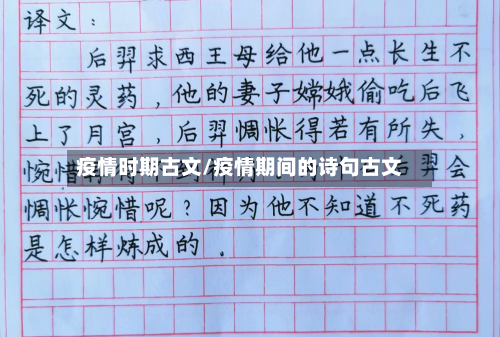 译文：
后羿求西王母给他一点长生不
死的灵药，他的妻子嫦娥偷吃后飞
上了月宫，后羿惆怅得若有所失，
惋惜
疫情时期古文/疫情期间的诗句古文
后羿会
惆怅惋惜呢？因为他不知道不死药
是怎样炼成的．